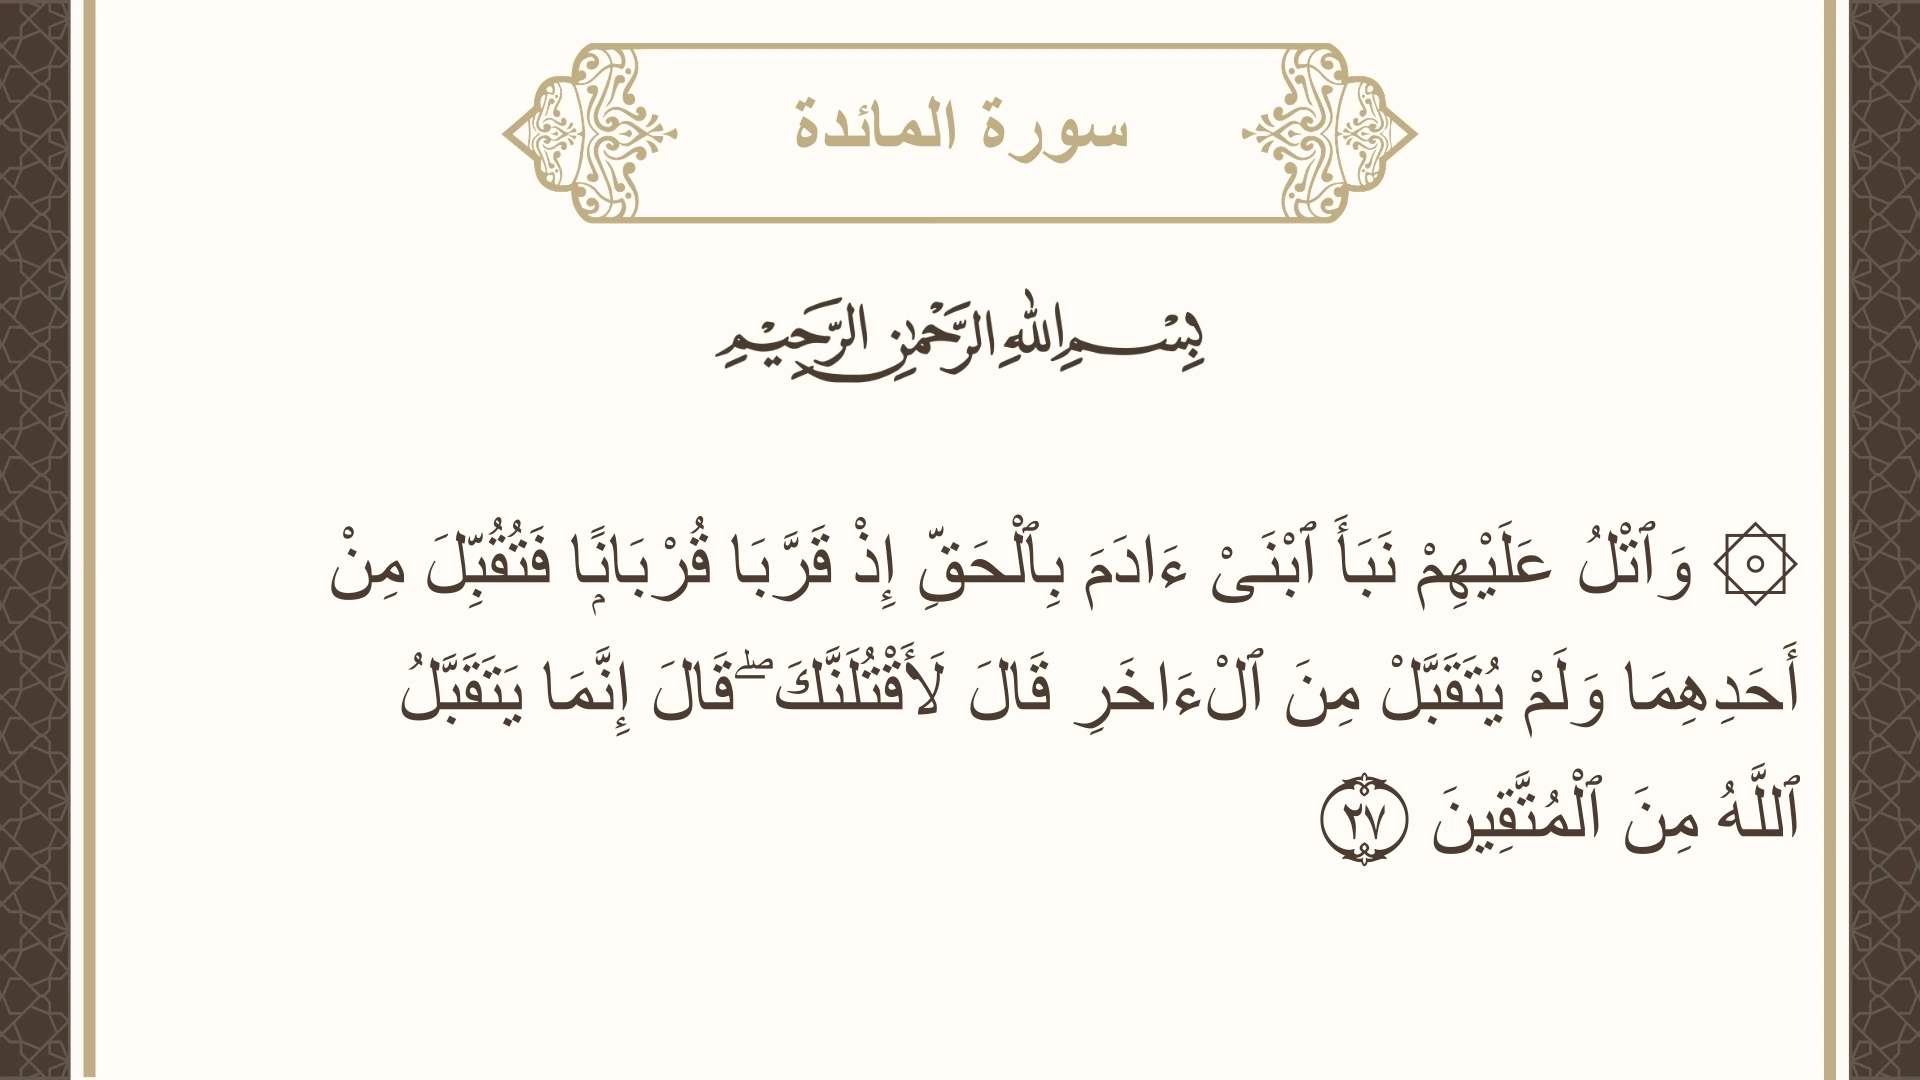 سورة المائدة
بِسْمِ اللهِ الرَّحْمٰنِ الرَّحِيْمِ
۞ وَٱتْلُ عَلَيْهِمْ نَبَأَ ٱبْنَىْ ءَادَمَ بِٱلْحَقِّ إِذْ قَرَّبَا قُرْبَانًۭا فَتُقُبِّلَ مِنْ
أَحَدِهِمَا وَلَمْ يُتَقَبَّلْ مِنَ ٱلْءَاخَرِ قَالَ لَأَقْتُلَنَّكَ ۖ قَالَ إِنَّمَا يَتَقَبَّلُ
ٱللَّهُ مِنَ ٱلْمُتَّقِينَ ٢٧